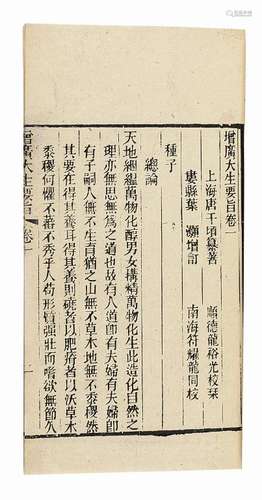 增廣大生要旨卷一
上海唐千頃纂著　順德龍裕光校栞
婁縣葉灝增訂　南海符燿龍同校
種子
總論
天地絪縕萬物化醇男女構精萬物化生此造化自然之
理亦無思無為之道也故有人道卽有夫婦有夫婦卽
有子嗣人無不生育猶之山無不草木地無不黍稷然
其要在得其養耳得其養則磽者以肥瘠者以沃草木
黍稷何懼不蕃不秀乎人苟形質強壯而嗜欲無節久
增廣大生要旨 卷一
一